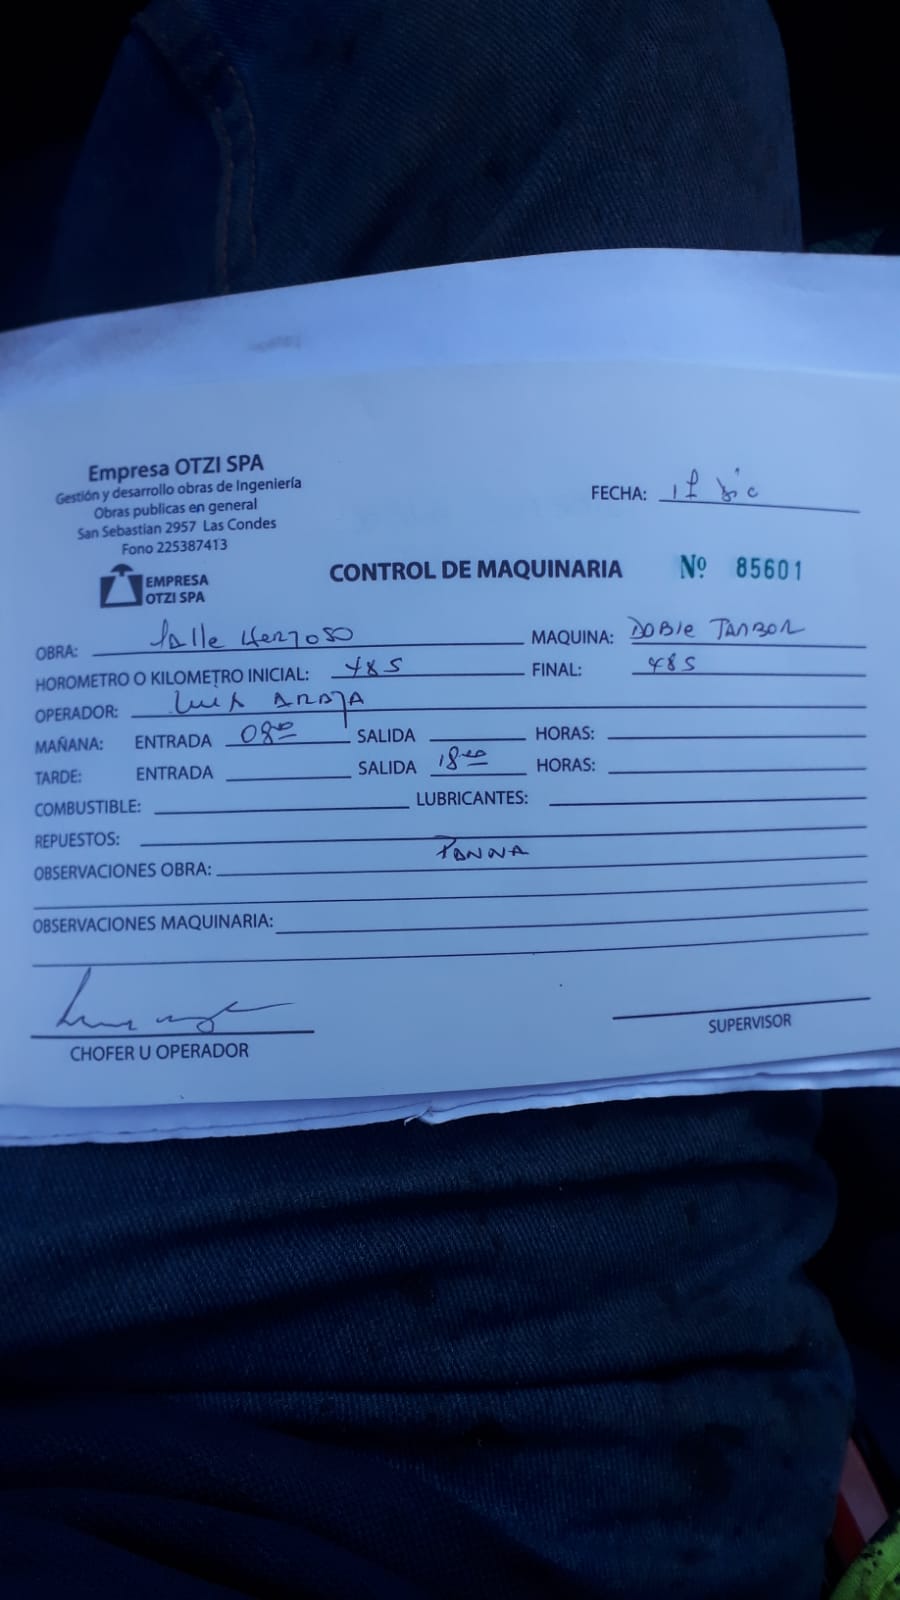 Empresa OTZI SPA
Gestión y desarrollo obras de Ingeniería
Obras publicas en general
San Sebastian 2957 Las Condes
Fono 225387413
EMPRESA
OTZI SPA
FECHA: Dic
CONTROL DE MAQUINARIA Nº 85601
OBRA: Hermoso MAQUINA: DOBLE TAMBOR
HOROMETRO O KILOMETRO INICIAL: 485 FINAL: 485
OPERADOR: Luis ARAYA
MAÑANA: ENTRADA 08:00 SALIDA HORAS:
TARDE: ENTRADA SALIDA 18:00 HORAS:
COMBUSTIBLE: LUBRICANTES:
REPUESTOS:
OBSERVACIONES OBRA: PANNA
OBSERVACIONES MAQUINARIA:
CHOFER U OPERADOR
SUPERVISOR